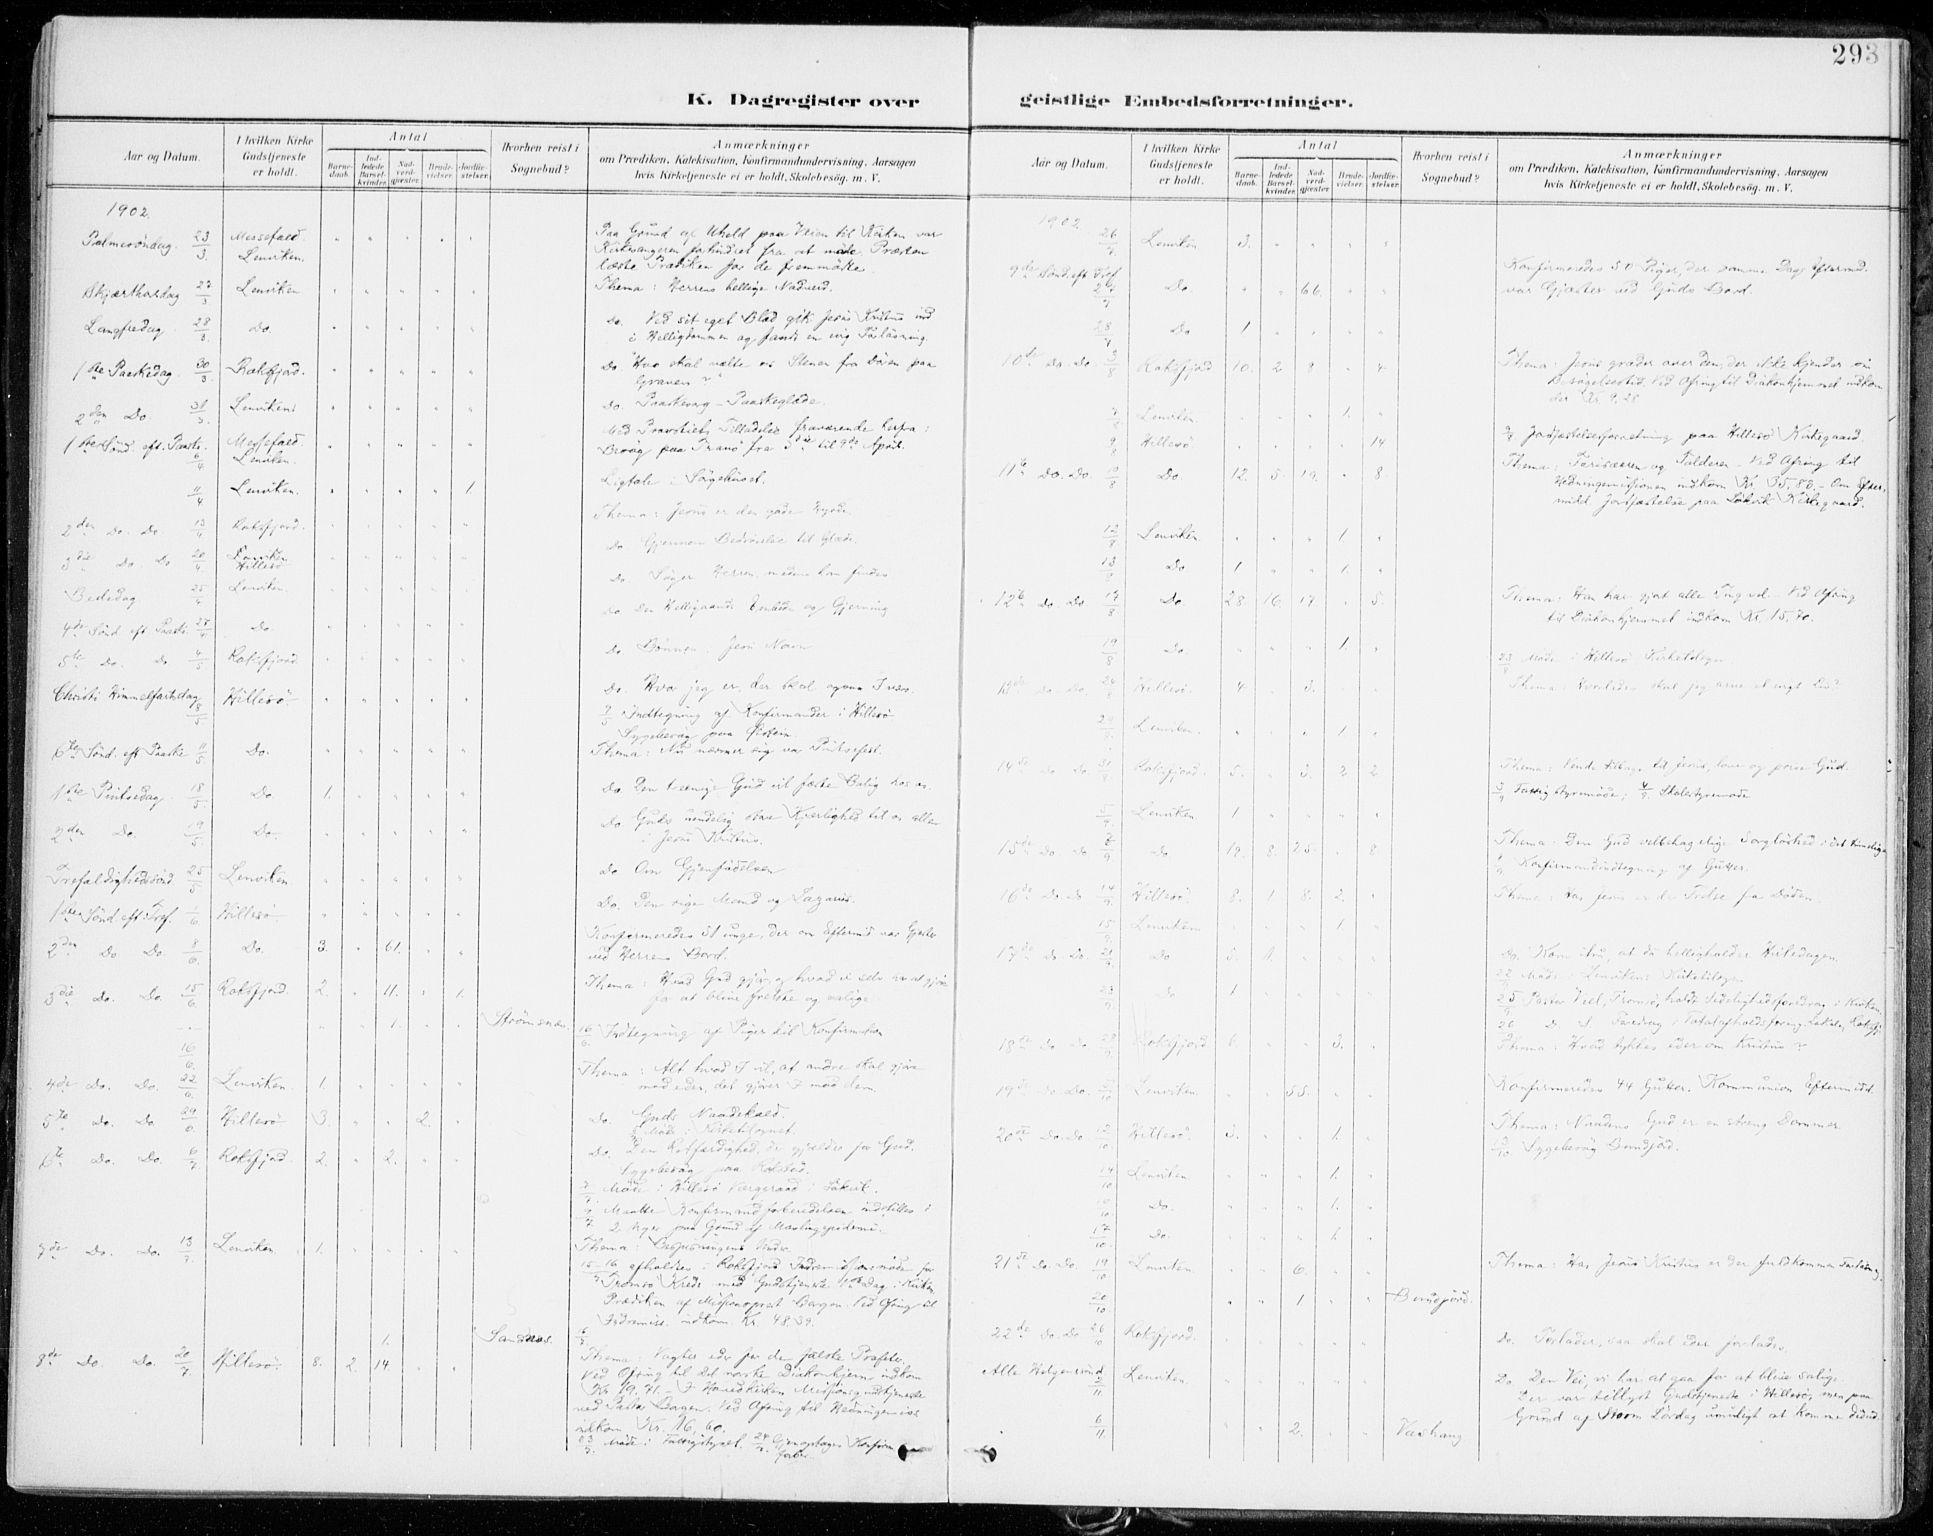 293
K. Dagregister over geistlige Embedsforretninger.
Aar og Datum.
I hvilken Kirke Gudstjeneste er holdt.
Antal
Barnedaab.
Indledede Barselkvinder.
Nadverdgjæster.
Brudevielser.
Jordfæstelser.
Hvorhen reist i Sognebud?
Anmærkninger
om Prædiken, Katekisation, Konfirmandundervisning, Aarsagen
hvis Kirketjeneste ei er holdt, Skolebesøg, m. V.
1902.
Palmesöndag. 23/3 Messefald. Lenviken. Paa Grund af Uheld paa Veien til Kirken var
Kirkesangeren forhindret fra at møde. Præsten
læste Prædiken for de fremmötte.
Skjærthorsdag 27/3 Lenviken Thema: Herrens hellige Nadverd.
Langfredag 28/3 Do. Do. Ved sit eget Blod gik Jesus Kristus ind
i Helligdommen og fandt en evig Forlösning.
1ste Paaskedag. 30/3 Roksfjord. Do. "Hvo skal vælte os Stenen fra Dören paa
Graven?"
2den Do. 31/3 Lenviken Do. Paaskesorg - Paaskeglæde.
1ste Sönd. eft. Paaske. 6/4 Messefald. Lenviken. Med Provstiets Tilladelse fraværende herfra:
Besög paa Tranö fra 3die til 9de April.
11/4 Lenviken. 1 Ligtale i Sörgehuset.
2den Do. Do. 13/4 Roksfjord. Thema: Jesus er den gode Hyrde.
3die Do. Do. 20/4 Lenviken Hillesö Do. Gjennem Bedrövelse til Glæde.
Bededag 25/4 Lenviken. Do. Söger Herren, medens han findes
4de Sönd. eft. Paaske 27/4 Do. Do. Den Helligaands Embede og Gjerning
5te Do. Do 4/5 Roksfjord Do. Bönnen i Jesu Navn
Christi Himmelfartsdag 8/5 Hillesö. Do. Hvor jeg er, der skal ogsaa I være.
7/5 Indtegning af Konfirmander i Hillesö
Sygebesög paa
6te Sönd. eft. Paaske 11/5 Do. Thema: Nu nærmer sig vor Pintsefest.
1ste Pintsedag. 18/5 Do. 1. Do. Den treenige Gud vil fæste Bolig hos os.
2den Do. 19/5 Do. Do. Guds uendelig store Kjærlighed til os alle
i Jesus Kristus.
Trefaldighedssönd. 25/5 Lenviken Do. Om Gjenfödelsen
1ste Sönd. eft. Tref. 1/6 Hillesö Do. Den rige Mand og Lazarus.
2den Do Do. 8/6 Do. 3. 61. Konfirmeredes 51 unge, der om Eftermid. var Gjæster
ved Herrens Bord.
3die Do. Do. 15/6 Roksfjord. 2. 11. 1. Thema: Hvad Gud gjör, og hvad vi selv har at gjöre
for at blive frelste og salige
16/6 1. Strömsnes. 16/6 Indtegning af Piger til Konfirmation
4de Do. Do. 22/6 Lenviken. 1. Thema: Alt hvad I vil, at andre skal gjöre
mod eder, det gjörer I mod dem.
5te Do. Do. 29/6 Hillesö 3. 2. Do. Guds Naadekald.
Möde i Kirketilsynet.
6te Do. Do. 6/7 Roksfjord. 2. 2. Do. Den Retfærdighed, der gjælder for Gud.
Sygebesög paa
Möde i Hillesö Værgeraad i
9/7 Maatte Konfirmandforberedelsen indstilles i
2 Uger paa Grund af Meslingepidemi.
7de Do. Do. 13/7 Lenviken. 1. Thema: Bespisningens Under.
15-16/7 afholdtes i Roksfjord Indremissionsmöde for
Tromsö Kreds med Gudstjeneste 1ste Dag i Kirken.
Prædiken af Missionsprest Borgen. Ved Ofring til
Indremiss. indkom. Kr. 48,39.
1. Sandnes.
8de Do. Do. 20/7 Hillesö. 8. 2. 14. Thema: Vogter eder for de falske Profeter.
Ved Ofring til det norske Diakonhjem indkom
Kr. 19,71. - I Hovedkirken Missionsgudstjeneste
ved Borgen. Ved Ofring til Hedningemiss.
indkom Kr. 116,60.
23/7 Möde i Fattigstyret. 24/7 Gjenoptages Konfirm
forber.
1902
26/7 Lenviken 3.
9de Sönd. eft. Tref. 27/7 Do. 66. Konfirmeredes 50 Piger, der samme Dags Eftermid.
var Gjæster ved Guds Bord.
28/7 Do 1
10de Do. Do. 3/8 Roksfjord 10. 2 8 4 Thema: Jesus græder over den, der ikke kjender sin
Besögelsestid. Ved Ofring til Diakonhjemmet indkom
der Kr. 9,28
Lenviken. 1.
9/8 Hillesö 14 9/8 Jordfæstelsesforretning paa Hillesö Kirkegaard.
11te Do. Do. 10/8 Do 12. 5. 19. 8. Thema: Farisæeren og Tolderen - Ved Ofring til
Hedningemissionen indkom Kr. 35,83. - Om Eftermidd. Jordfæstelse paa Kirkegaard.
12/8 Lenviken. 1.
13/8 Do 1 1.
12te Do. Do 17/8 Do. 28. 16. 17. 5. Thema: Han har gjort alle Ting vel. - Ved Ofring
til Diakonhjemmet indkom Kr. 15,70.
19/8 Do. 1. 23/8 Möde i Hillesö Kirketilsyn
13de Do Do. 24/8 Hillesö. 4. 3. Thema: Hvorledes skal jeg arve et evigt Liv?
29/8 Lenviken. 1
14de Do. Do. 31/8 Roksfjord. 5. 3. 2 2. Thema: Vende tilbage til Jesus, love og prise Gud.
3/9 Fattigstyremöde; 4/9 Skolestyremöde
5/9 Lenviken 1
15de Do. Do. 7/9 Do 19. 8. 25. 8 Thema: Den Gud velbehagelige Sorglöshed i det timelige
Konfirmandindtegning af Gutter.
16de Do. Do 14/9 Hillesö. 8. 1 8. 2. Thema: Hos Jesus er der Frelse fra Döden.
15/9 Lenviken 1.
17de Do. Do. 21/9 Do 5. 1. Do. Kom ihu, at du helligholder Hviledagen.
22/9 Möde i Lenvikens Kirketilsyn
23/9 Do 1 25/9 Pastor Tromsö, holdt Sedelighedsforedrag i Kirken.
26 D. S. Foredrag i Totalafholdsforen. Lokale,
18de Do Do 28/9 Roksfjord 6. 3. Thema: Hvad tykkes eder om Kristus?
19de Do Do. 5/10 Lenviken. 55. Konfirmeredes 44 Gutter. Kommunion Eftermidd.
20de Do. Do. 12/10 Hillesö 3. 1. Thema: Naadens Gud er en streng Dommer.
Sygebesög Bundfjord.
14/10 Lenviken 1.
16/10 Do. 1.
17/10 Do. 1
21de Do. Do. 19/10 Lenviken 6. Thema: Hos Jesus Kristus er der fuldkommen
20/10 1 Bundfjord.
22de Do. Do 26/10 Roksfjord. Do. Forlader, saa skal eder forlades.
Alle Helgensönd. 2/11 Lenviken. Do. Den Vei, vi har at gaa for at blive salige.
Der var tillyst Gudstjeneste i Hillesö, men paa
Grund af Storm Lördag umuligt at komme didud.
6/11 2.